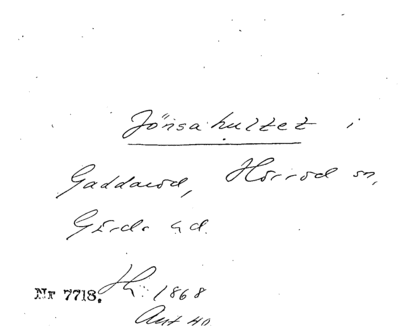 Jönsahultet i
Gaddaröd, Hörröd sn,
Gärds hd.
Nr 7718. 1868
Ant 40